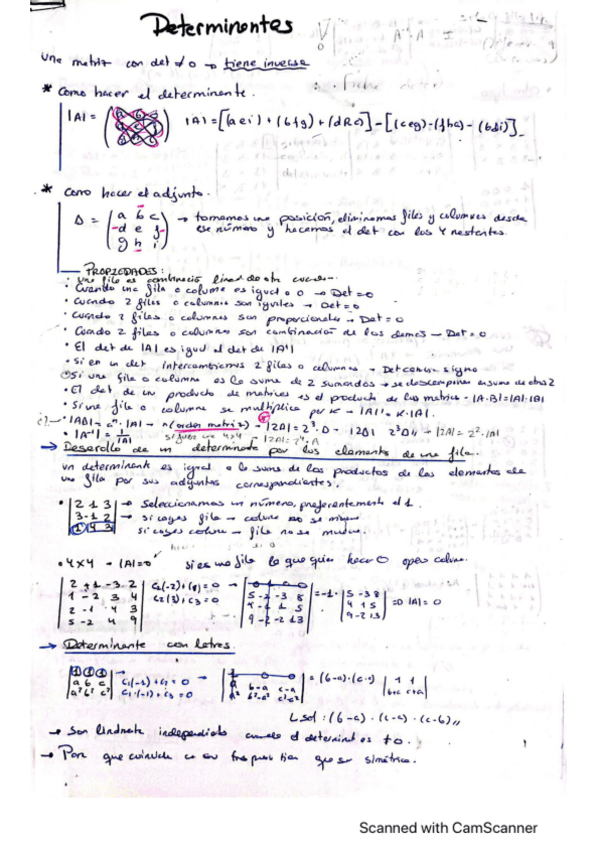 Determinantes
Una matriz con det ≠ 0 → tiene inversa
* Como hacer el determinante.
|A| = (a b c d e f g h i) |A| = [(aei) + (bfg) + (dhc)] - [(ceg) - (fha) - (bdi)]
* Como hacer el adjunto.
Δ = (a b c → tomamos una posición, eliminamos filas y columnas desde
d e f ese número y hacemos el det con los 4 restantes.
g h i)
PROPIEDADES:
• una fila es combinación lineal de otra cuando
• Cuando una fila o columna es igual a 0 → Det = 0
• Cuando 2 filas o columnas son iguales → Det = 0
• Cuando 2 filas o columnas son proporcionales → Det = 0
• Cuando 2 filas o columnas son combinación de las demás → Det = 0
• El det de |A| es igual al det de |Aᵗ|
• Si en un det intercambiamos 2 filas o columnas → Det cambia signo
• Si una fila o columna es la suma de 2 sumandos → se descompone en suma de otros 2
• El det de un producto de matrices es el producto de las matrices → |A·B| = |A|·|B|
• Si una fila o columna se multiplica por K → |A| = K·|A|
• n (orden matriz) → |2A| = 2³·
• |A⁻¹| = 1/|A| si fuese una 4x4 |2A| = 2⁴·A
→ Desarrollo de un determinante por los elementos de una fila.
un determinante es igual a la suma de los productos de los elementos de
una fila por sus adjuntos correspondientes.
• |2 1 3| → seleccionamos un número, preferentemente el 1.
|3 -1 2| → si coges fila → columna no se mueve
|1 4 3| → si coges columna → fila no se mueve
• 4x4 → |A| = 0 si es una fila la que quier hacer 0 opero column
|2 +1 -3 2| C₂(-2)+C₁ = 0 →
|1 -2 3 4| C₂(3)+C₃ = 0
|2 -1 4 3|
|5 -2 4 9|
|5 -2 -3 8| = -1· |5 -3 8| ⇒ |A| = 0
|4 -1 1 5| |4 1 5|
|9 -2 -2 13| |9 -2 13|
→ Determinante con letras.
|1 1 1| →
|a b c| C₁(-1) + C₂ = 0
|a² b² c²| C₁·(-1) + C₃ = 0
|a b-a c-a| = (b-a)·(c-a) |1 1|
|a² b²-a² c²-a²| |b+a c+a|
Lsol: (b-a)·(c-a)·(c-b)
→ Son lindmete independiente cuando el determinant es ≠ 0.
→ Para que coincida con su traspuesta tien que ser simétrica.
Scanned with CamScanner